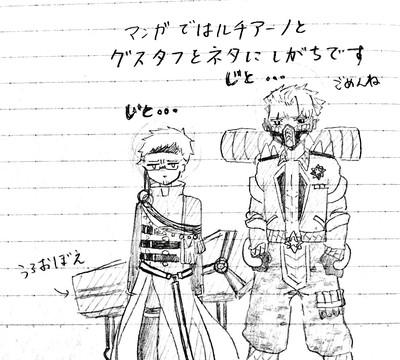 マンガではルチアーノと
グスタフとネタにしがちです
じと…
ごめんね
じと…
うろおぼえ